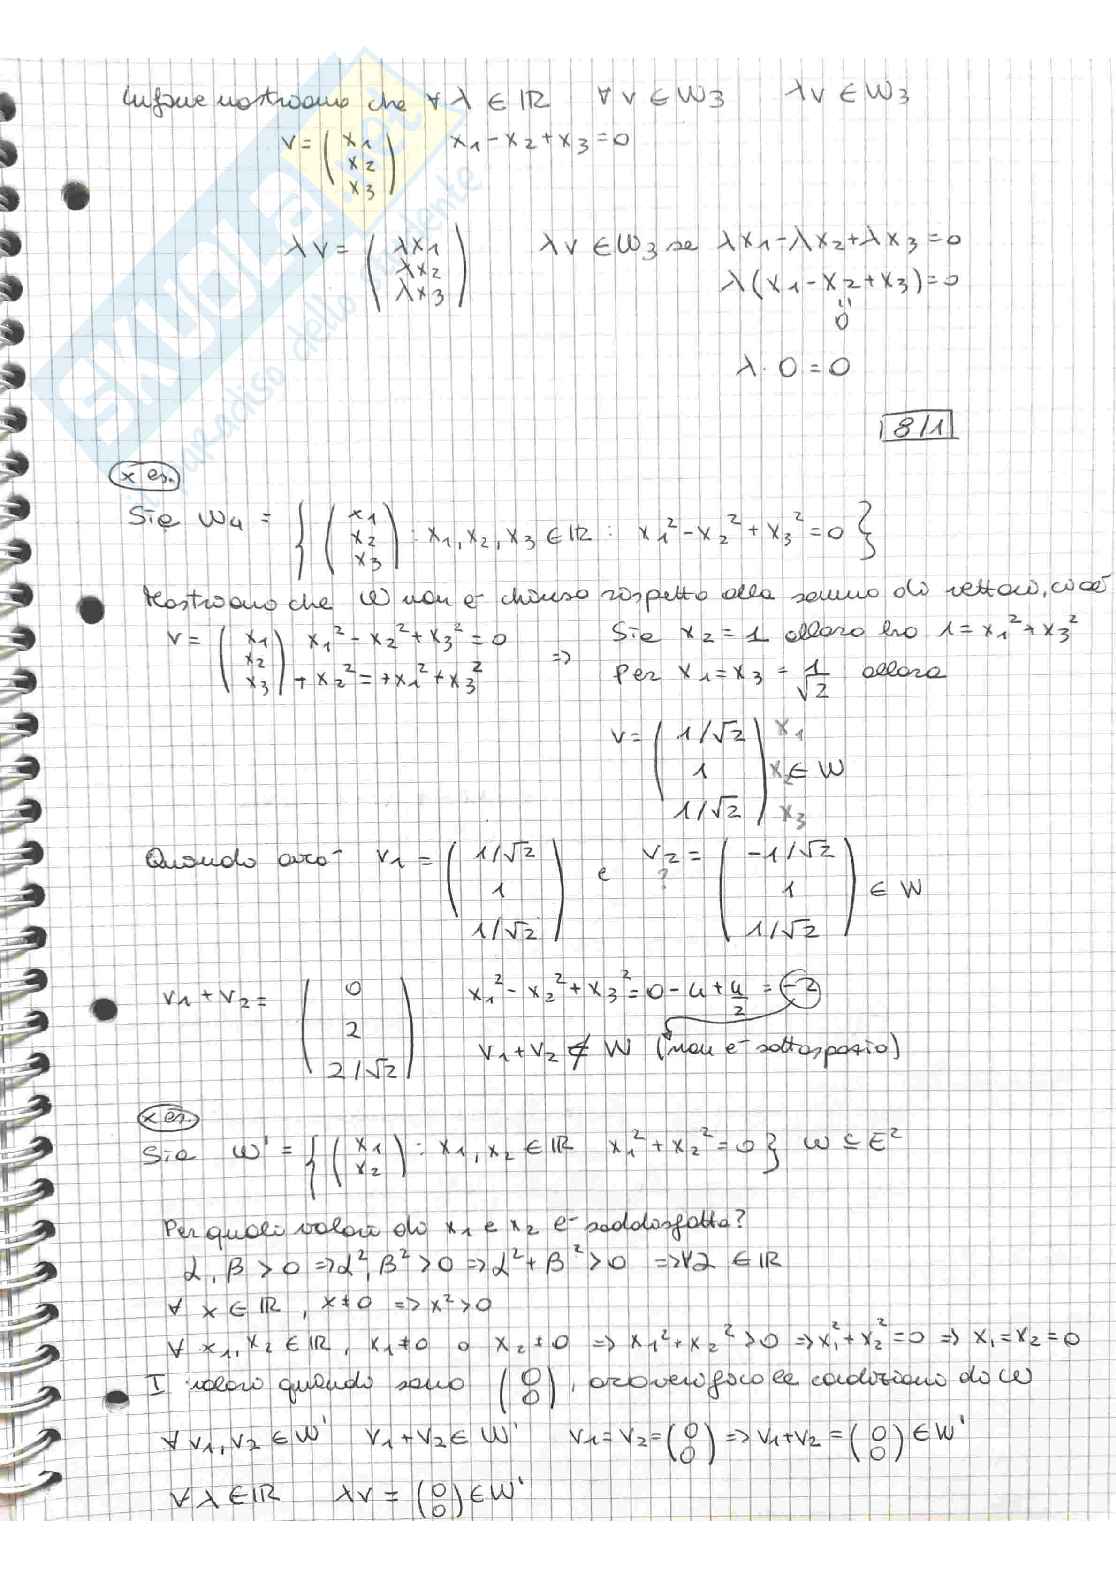 Infine mostriamo che ∀ λ ∈ IR ∀ v ∈ W3 λv ∈ W3
v = (x1 x2 x3) x1 - x2 + x3 = 0
λv = (λx1 λx2 λx3) λv ∈ W3 se λx1 - λx2 + λx3 = 0
λ(x1 - x2 + x3) = 0
0
λ · 0 = 0
8/1
x es.
Sia W4 = { (x1 x2 x3) : x1, x2, x3 ∈ IR : x1² - x2² + x3² = 0 }
Mostriamo che W non è chiuso rispetto alla somma di vettori, cioè
v = (x1 x2 x3) x1² - x2² + x3² = 0 ⇒ Sia x2 = 1 allora ho 1 = x1² + x3²
+ x2² = + x1² + x3² Per x1 = x3 = 1/√2 allora
v = (1/√2 1 1/√2) x1 x2 x3 ∈ W
Quando avrò v1 = (1/√2 1 1/√2) e v2 = (-1/√2 1 1/√2) ∈ W
?
v1 + v2 = (0 2 2/√2) x1² - x2² + x3² = 0 - 4 + 4/2 = -2
v1 + v2 ∉ W (non è sottospazio)
x es.
Sia W' = { (x1 x2) : x1, x2 ∈ IR x1² + x2² = 0 } W ⊆ E²
Per quali valori di x1 e x2 è soddisfatta?
α, β > 0 ⇒ α², β² > 0 ⇒ α² + β² > 0 ⇒ ∀α ∈ IR
∀ x ∈ IR, x ≠ 0 ⇒ x² > 0
∀ x1, x2 ∈ IR, x1 ≠ 0 o x2 ≠ 0 ⇒ x1² + x2² > 0 ⇒ x1² + x2² = 0 ⇒ x1 = x2 = 0
I valori quando sono (0 0), ora verifico le condizioni di W
∀ v1, v2 ∈ W' v1 + v2 ∈ W' v1 = v2 = (0 0) ⇒ v1 + v2 = (0 0) ∈ W'
∀ λ ∈ IR λv = (0 0) ∈ W'
SKUOLA.net
il paradiso dello studente